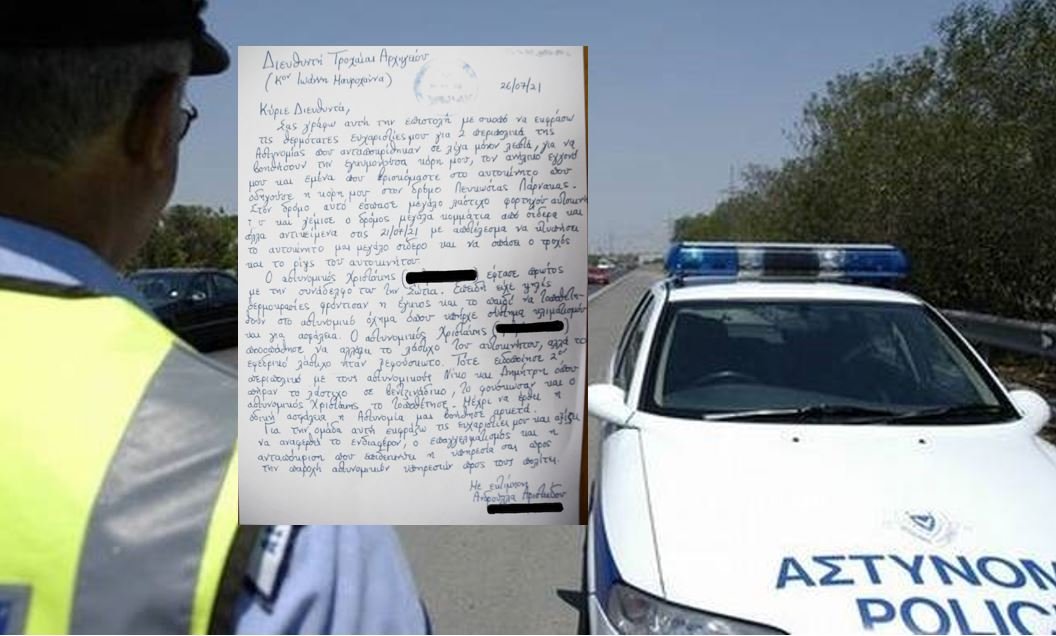 Διευθυντή Τροχαίας Αρχηγείου
(Κον Ιωάννη Μαυροχάννα)
26/07/21
Κύριε Διευθυντά,
Σας γράφω αυτή την επιστολή με σκοπό να εκφράσω
τις θερμότατες ευχαριστίες μου για 2 περιπολικά της
Αστυνομίας που ανταποκρίθηκαν σε λίγα μόνον λεπτά, για να
βοηθήσουν την εγκυμονούσα κόρη μου, τον ανήλικο εγγονό
μου και εμένα που βρισκόμαστε στο αυτοκίνητο που
οδηγούσε η κόρη μου στον δρόμο Λευκωσίας Λάρνακας.
Στον δρόμο αυτό έσπασε μεγάλο λάστιχο φορτηγού αυτοκινή
του και γέμισε ο δρόμος μεγάλα κομμάτια από σίδερα και
άλλα αντικείμενα στις 21/07/21 με αποτέλεσμα να κτυπήσει
το αυτοκίνητο μας μεγάλο σίδερο και να σπάσει ο τροχός
και το ρίγς του αυτοκινήτου.
Ο αστυνομικός Χριστάκης έφτασε πρώτος
με την συνάδελφο του την Σώτια. Επειδή είχε ψηλές
θερμοκρασίες φρόντισαν η έγκυος και το παιδί να τοποθετη-
θούν στο αστυνομικό όχημα όπου υπήρχε σύστημα κλιματισμού
και για ασφάλεια. Ο αστυνομικός Χριστάκης
προσπάθησε να αλλάξει το λάστιχο του αυτοκινήτου, αλλά το
εφεδρικό λάστιχο ήταν ξεφούσκωτο. Τότε ειδοποίησε 2ο
περιπολικό με τους αστυνομικούς Νίκο και Δημήτρη όπου
πήραν το λάστιχο σε βενζινάδικο, το φούσκωσαν και ο
αστυνομικός Χριστάκης το τοποθέτησε. Μέχρι να έρθει η
οδική ασφάλεια η Αστυνομία μας βοήθησε αρκετά.
Για την ομάδα αυτή εκφράζω τις ευχαριστίες μου και αξίζει
να αναφερθεί το ενδιαφέρον, ο επαγγελματισμός και η
ανταπόκριση που επιδεικνύει η υπηρεσία σας προς
την παροχή αστυνομικών υπηρεσιών προς τους πολίτες.
Με εκτίμηση
Ανδρούλλα Αριστείδου
ΑΣΤΥΝΟΜ
POLIC